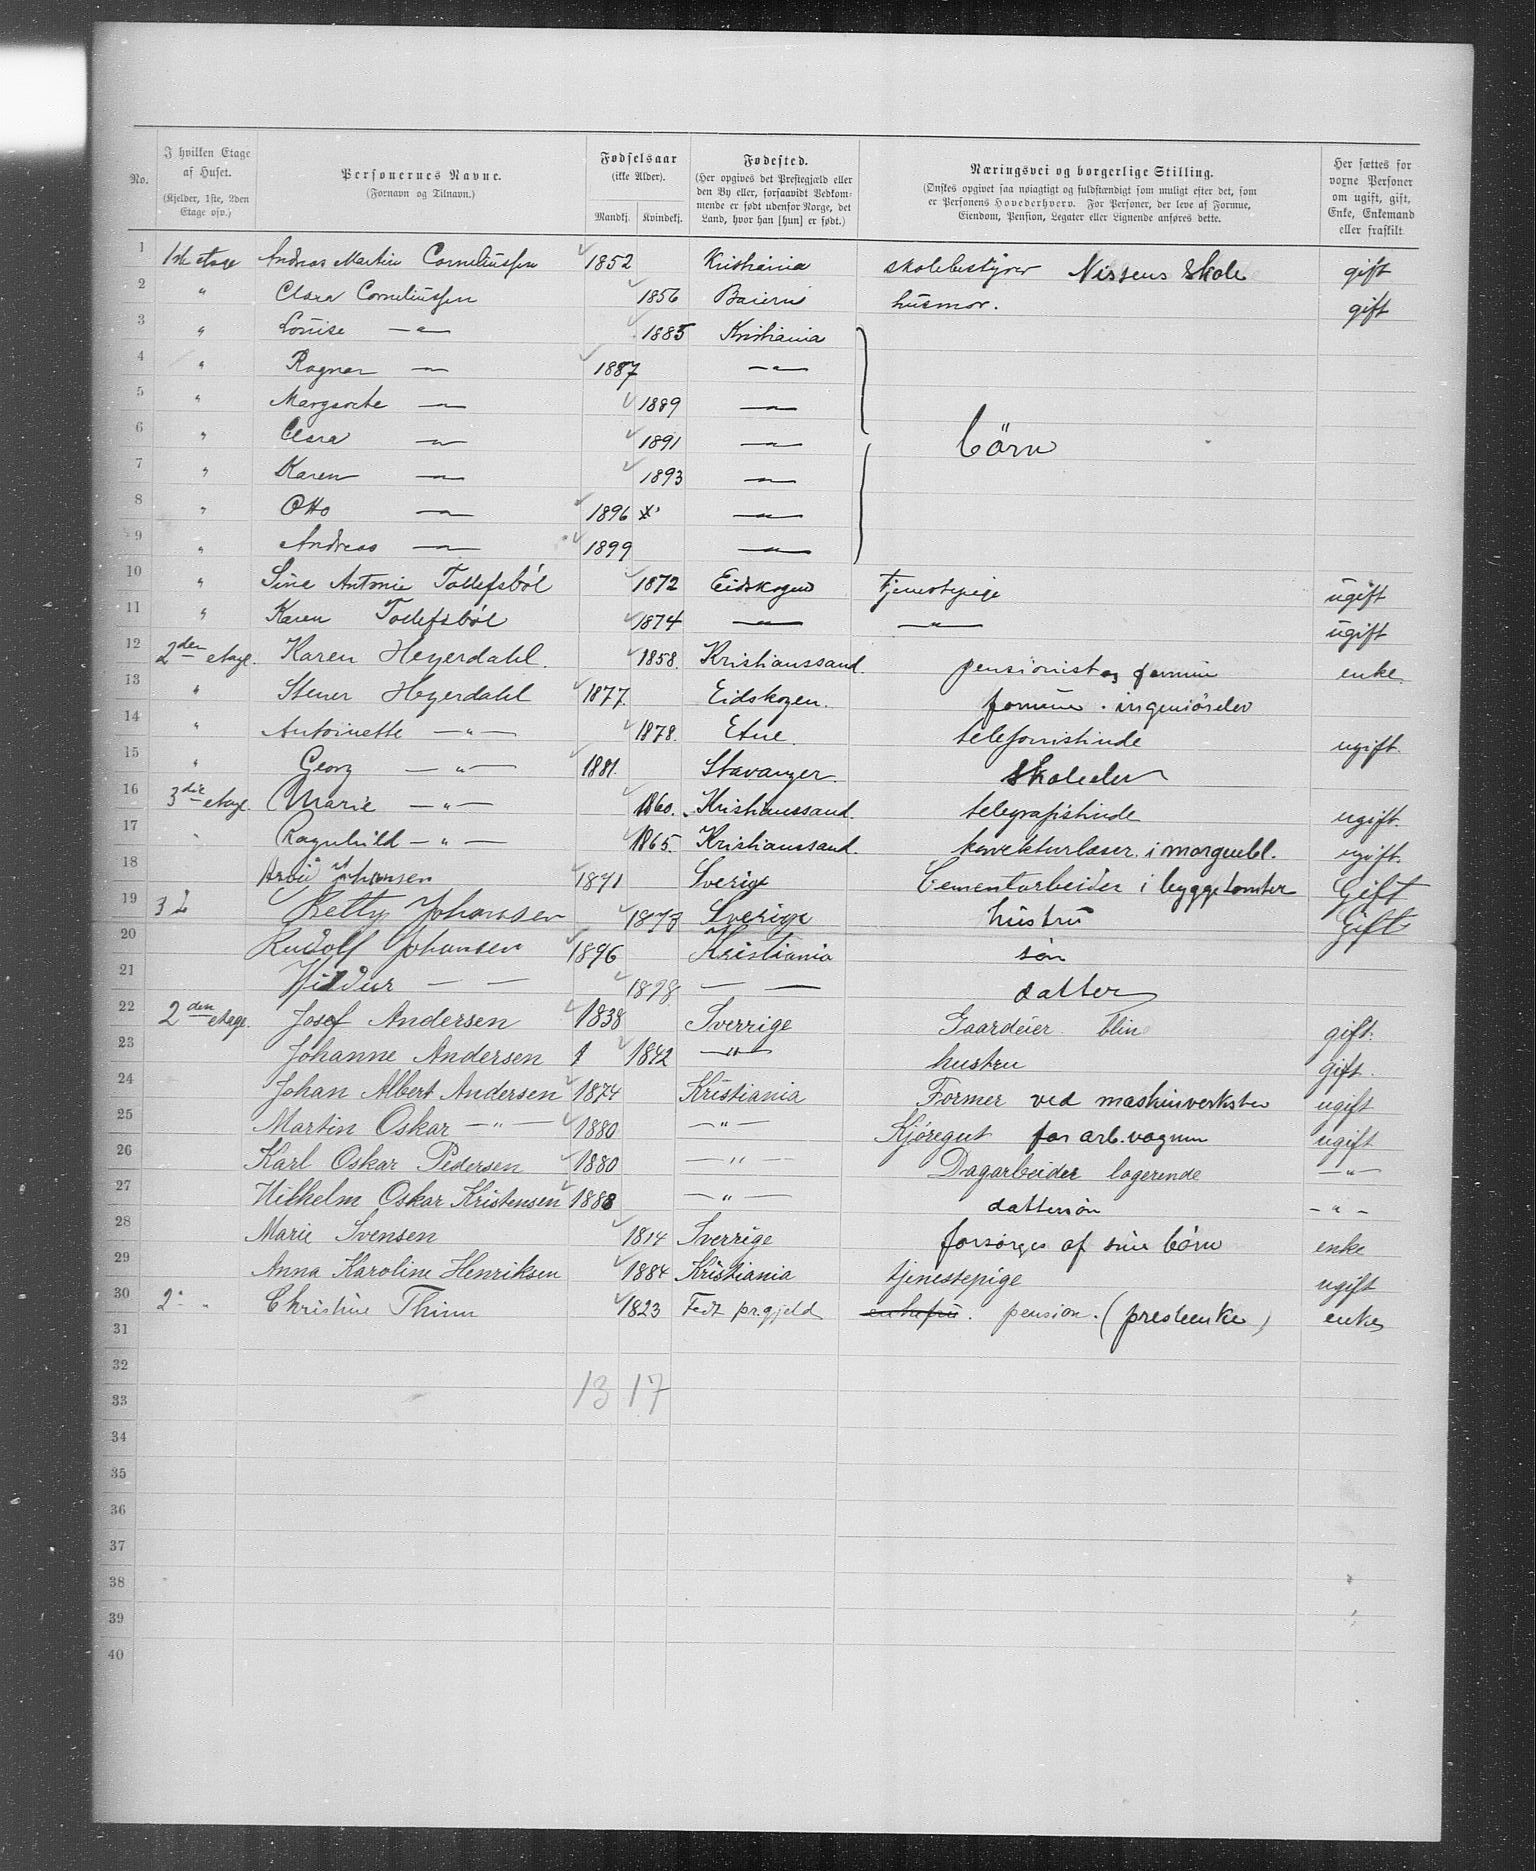 No.
I hvilken Etage af Huset.
(Kjelder, 1ste, 2den Etage osv.)
Personernes Navne.
(Fornavn og Tilnavn.)
Fødselsaar
(ikke Alder).
Mandkj. Kvindekj.
Fødested.
(Her opgives det Prestegjæld eller den By eller, forsaavidt Vedkommende er født udenfor Norge, det Land, hvor han [hun] er født.)
Næringsvei og borgerlige Stilling.
(Ønskes opgivet saa nøiagtigt og fuldstændigt som muligt efter det, som er Personens Hovederhverv. For Personer, der leve af Formue, Eiendom, Pension, Legater eller Lignende anføres dette.
Her sættes for voxne Personer om ugift, gift, Enke, Enkemand eller fraskilt
1 1ste etage Andreas Martin Corneliussen 1852 Kristiania skolebestyrer Nissens Skole gift
2 " Clara Corneliussen 1856 Baiern husmor. gift
3 " Louise —"— 1885 Kristiania
4 " Ragnar —"— 1887 —"—
5 " Margarete —"— 1889 —"—
6 " Clara —"— 1891 —"— börn
7 " Karen —"— 1893 —"—
8 " Otto —"— 1896 —"—
9 " Andreas —"— 1899 —"—
10 " Sina Antonie Tollefsböl 1872 Eidskogen Tjenestepige ugift
11 " Karen Tollefsböl 1874 —"— —"— ugift
12 2den etage. Karen Heyerdahl. 1858. Kristianssand. pensionist og formue enke.
13 " Stener Heyerdahl 1877. Eidskogen. formue. ingeniörelev
14 " Antoinette —"— 1878. Etne. telefonistinde ugift.
15 " Georg —"— 1881. Stavanger. Skoleelev
16 3die etage. Marie —"— 1860. Kristianssand. telegrafistinde ugift.
17 " Ragnhild —"— 1865. Kristianssand. korrekturlæser i morgenbl. ugift.
18 Johansen 1871 Sverige Cementarbeider i byggetomter Gift
19 3 Betty Johansen 1873 Sverige hustru Gift
20 Rudolf Johansen 1896 Kristiania sön
21 Hildur — — 1898 — — datter
22 2den etage. Josef Andersen 1838 Sverrige Gaardeier blin gift.
23 Johanne Andersen 1842 —"— hustru gift.
24 Johan Albert Andersen 1874 Kristiania Former ved maskinverksted ugift
25 Martin Oskar —"— 1880 —"— Kjøregut for arb.vognm ugift
26 Karl Oskar Pedersen 1880 —"— Dagarbeider logerende —"—
27 Wilhelm Oskar Kristensen 1888 —"— dattersön —"—
28 Marie Svensen 1814 Sverrige forsörges af sine börn enke
29 Anna Karoline Henriksen 1884 Kristiania tjenestepige ugift
30 2. " Christine Thinn 1823 Fedt pr.gjeld enkefru. pension. (presteenke) enke
31
32
33 13 17
34
35
36
37
38
39
40